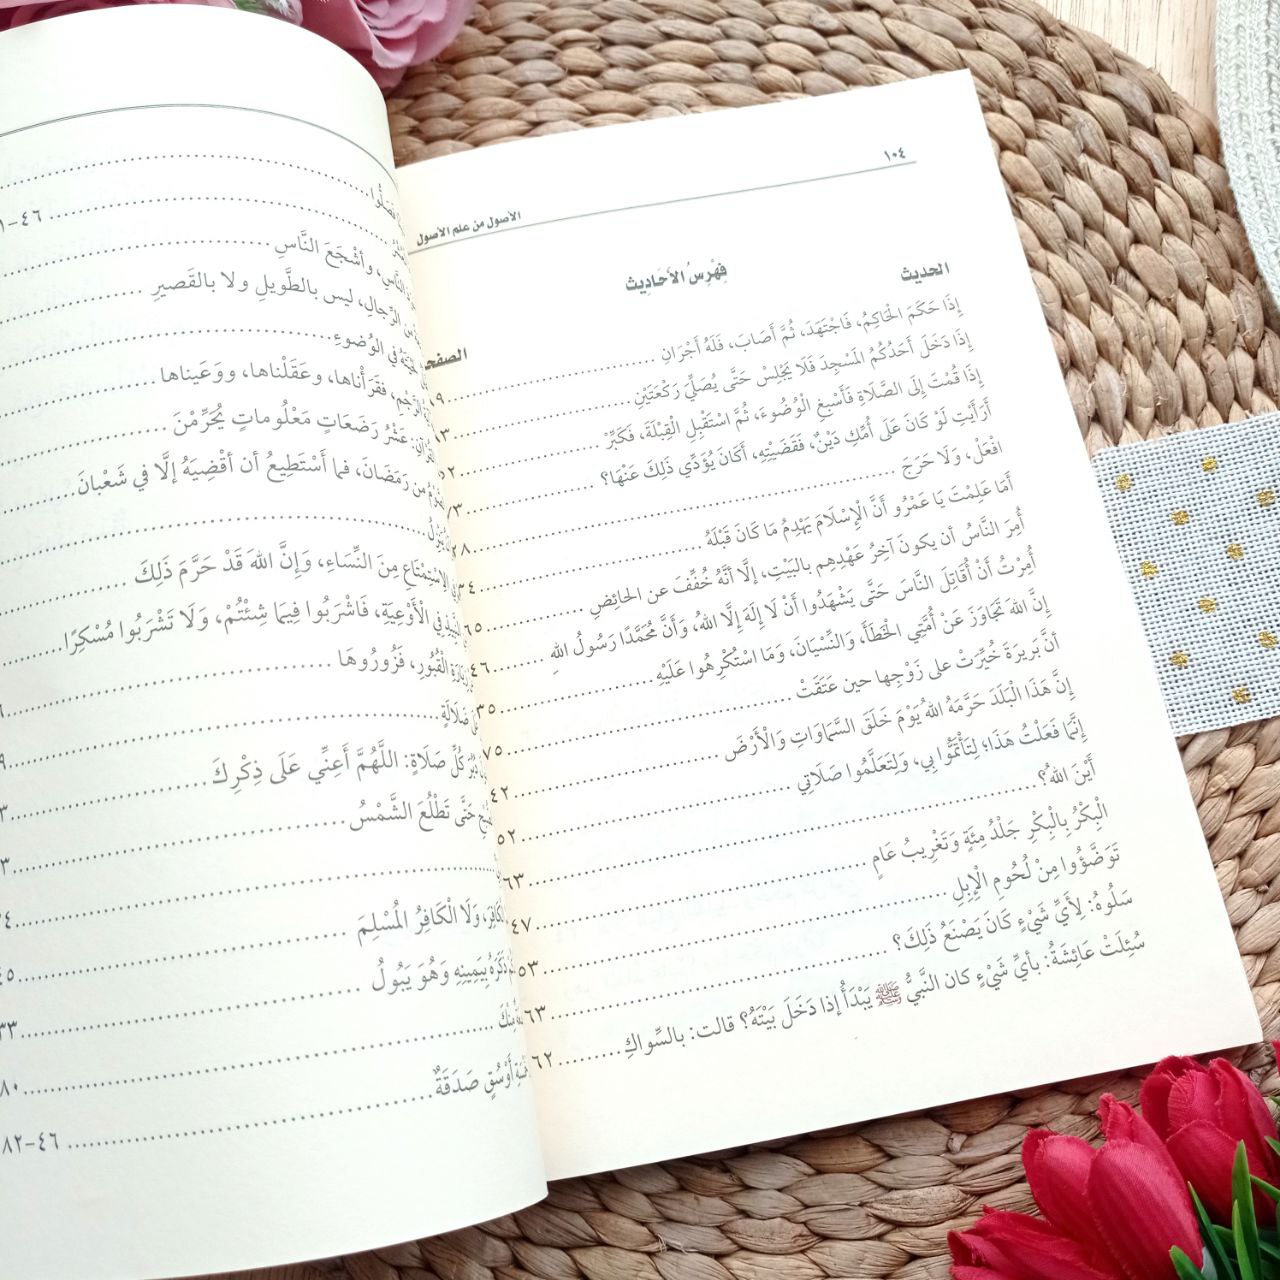 ١٠٤
الأصول من علم الأصول
فِهْرِسُ الأَحَادِيث
الحديث
الصفحة
إِذَا حَكَمَ الْحَاكِمُ، فَاجْتَهَدَ، ثُمَّ أَصَابَ، فَلَهُ أَجْرَانِ
إِذَا دَخَلَ أَحَدُكُمُ المَسْجِدَ فَلَا يَجْلِسْ حَتَّى يُصَلِّيَ رَكْعَتَيْنِ
إِذَا قُمْتَ إِلَى الصَّلَاةِ فَأَسْبِغِ الْوُضُوءَ، ثُمَّ اسْتَقْبِلِ الْقِبْلَةَ، فَكَبِّرْ
أَرَأَيْتِ لَوْ كَانَ عَلَى أُمِّكِ دَيْنٌ، فَقَضَيْتِهِ، أَكَانَ يُؤَدِّي ذَلِكَ عَنْهَا؟
افْعَلْ، وَلَا حَرَجَ
أَمَا عَلِمْتَ يَا عَمْرُو أَنَّ الْإِسْلَامَ يَهْدِمُ مَا كَانَ قَبْلَهُ ٣٤
أُمِرَ النَّاسُ أن يكونَ آخِرُ عَهْدِهِم بالبَيْتِ، إلَّا أنَّهُ خُفِّفَ عن الحائِضِ ٦٥
أُمِرْتُ أَنْ أُقَاتِلَ النَّاسَ حَتَّى يَشْهَدُوا أَنْ لَا إِلَهَ إِلَّا اللهُ، وَأَنَّ مُحَمَّدًا رَسُولُ اللهِ ٤٦
إِنَّ اللهَ تَجَاوَزَ عَنْ أُمَّتِي الْخَطَأَ، وَالنِّسْيَانَ، وَمَا اسْتُكْرِهُوا عَلَيْهِ ٣٥
أنَّ بَرِيرَةَ خُيِّرَتْ على زَوْجِها حين عَتَقَتْ ٧٥
إِنَّ هَذَا الْبَلَدَ حَرَّمَهُ اللهُ يَوْمَ خَلَقَ السَّمَاوَاتِ وَالْأَرْضَ ٤٢
إِنَّمَا فَعَلْتُ هَذَا؛ لِتَأْتَمُّوا بِي، وَلِتَعَلَّمُوا صَلَاتِي ٥٢
أَيْنَ اللهُ؟ ٦٣
الْبِكْرُ بِالْبِكْرِ جَلْدُ مِئَةٍ وَتَغْرِيبُ عَامٍ ٤٧
تَوَضَّؤُوا مِنْ لُحُومِ الْإِبِلِ ٥٣
سَلُوهُ: لِأَيِّ شَيْءٍ كَانَ يَصْنَعُ ذَلِكَ؟ ٦٣
سُئِلَتْ عَائِشَةُ: بأيِّ شَيْءٍ كان النَّبيُّ ﷺ يَبْدَأُ إذا دَخَلَ بَيْتَهُ؟ قالت: بالسِّواكِ ٦٢
٤٦
النَّاسِ، وأشْجَعَ النَّاسِ
الرِّجالِ، ليس بالطَّويلِ ولا بالقَصيرِ
في الوُضوءِ
فقَرَأْناها، وعَقَلْناها، ووَعَيناها
عَشْرُ رَضَعَاتٍ مَعْلُوماتٍ يُحَرِّمْنَ
من رَمَضَانَ، فما أَسْتَطِيعُ أن أقْضِيَهُ إلَّا في شَعْبانَ
الِاسْتِمْتَاعِ مِنَ النِّسَاءِ، وَإِنَّ اللهَ قَدْ حَرَّمَ ذَلِكَ
فِي الْأَوْعِيَةِ، فَاشْرَبُوا فِيمَا شِئْتُمْ، وَلَا تَشْرَبُوا مُسْكِرًا
الْقُبُورِ، فَزُورُوهَا
ضَلَالَةٍ
كُلِّ صَلَاةٍ: اللَّهُمَّ أَعِنِّي عَلَى ذِكْرِكَ
حَتَّى تَطْلُعَ الشَّمْسُ
وَلَا الْكَافِرُ الْمُسْلِمَ
ذَكَرَهُ بِيَمِينِهِ وَهُوَ يَبُولُ
أَوْسُقٍ صَدَقَةٌ
٨٢-٤٦